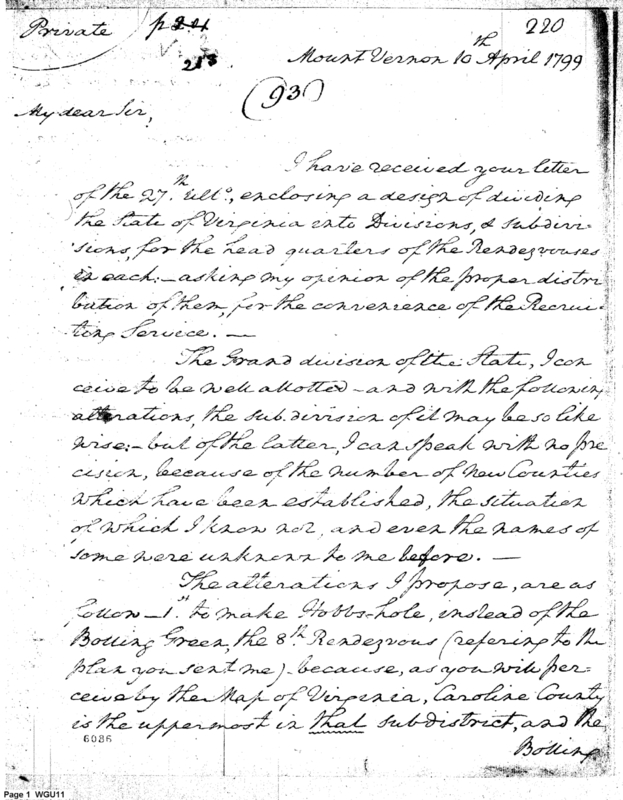 Private
220
213
Mount Vernon 10th April 1799
(93)
My dear Sir,
I have received your letter
of the 27th. ulto., enclosing a design of dividing
the State of Virginia into Divisions, & subdivi-
sions, for the head quarters of the Rendezvouses
in each:—asking my opinion of the proper distri
bution of them, for the convenience of the Recrui-
ting Service.—
The Grand division of the State, I con
ceive to be well allotted—and with the following
alterations, the subdivision of it may be so like
wise:—but of the latter, I can speak with no pre
cision, because of the number of New Counties
which have been established, the situation
of which I know not, and even the names of
some were unknown to me before.—
The alterations I propose, are as
follow—1st. to make Hobbs-hole, instead of the
Bolling Green, the 8th. Rendezvous (refering to the
plan you sent me) because, as you will per=
ceive by the Map of Virginia, Caroline County
is the uppermost in that subdistrict, and the
Bolling
6086
Page 1 WGU11